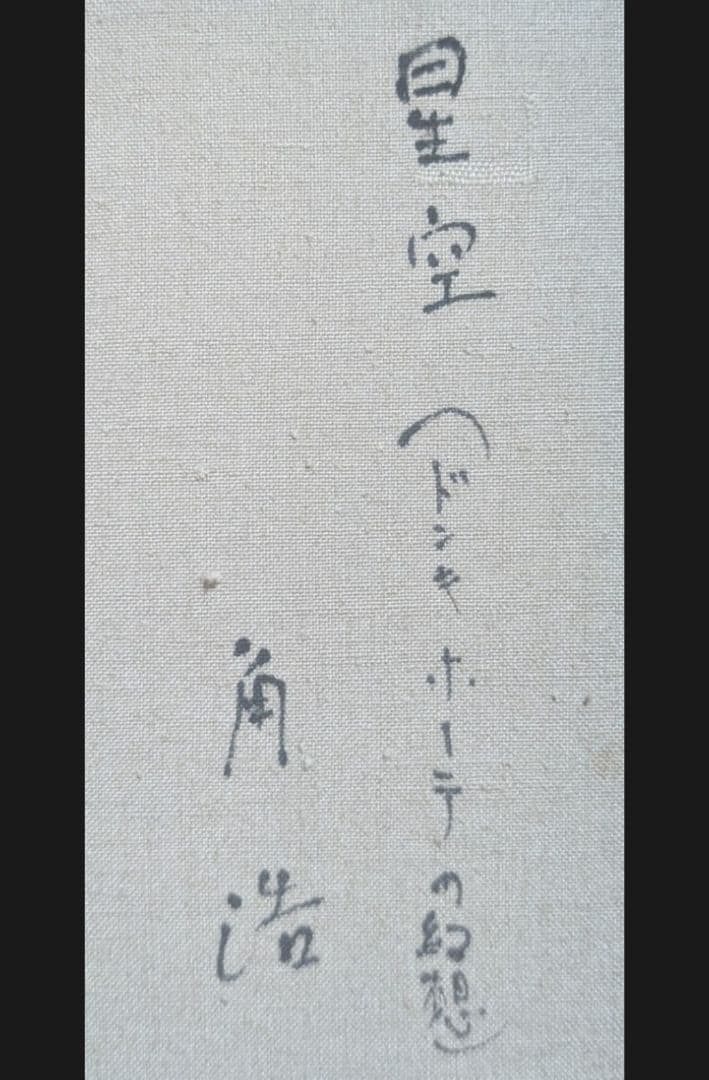 星空(ドンキホーテの幻想)
角 浩